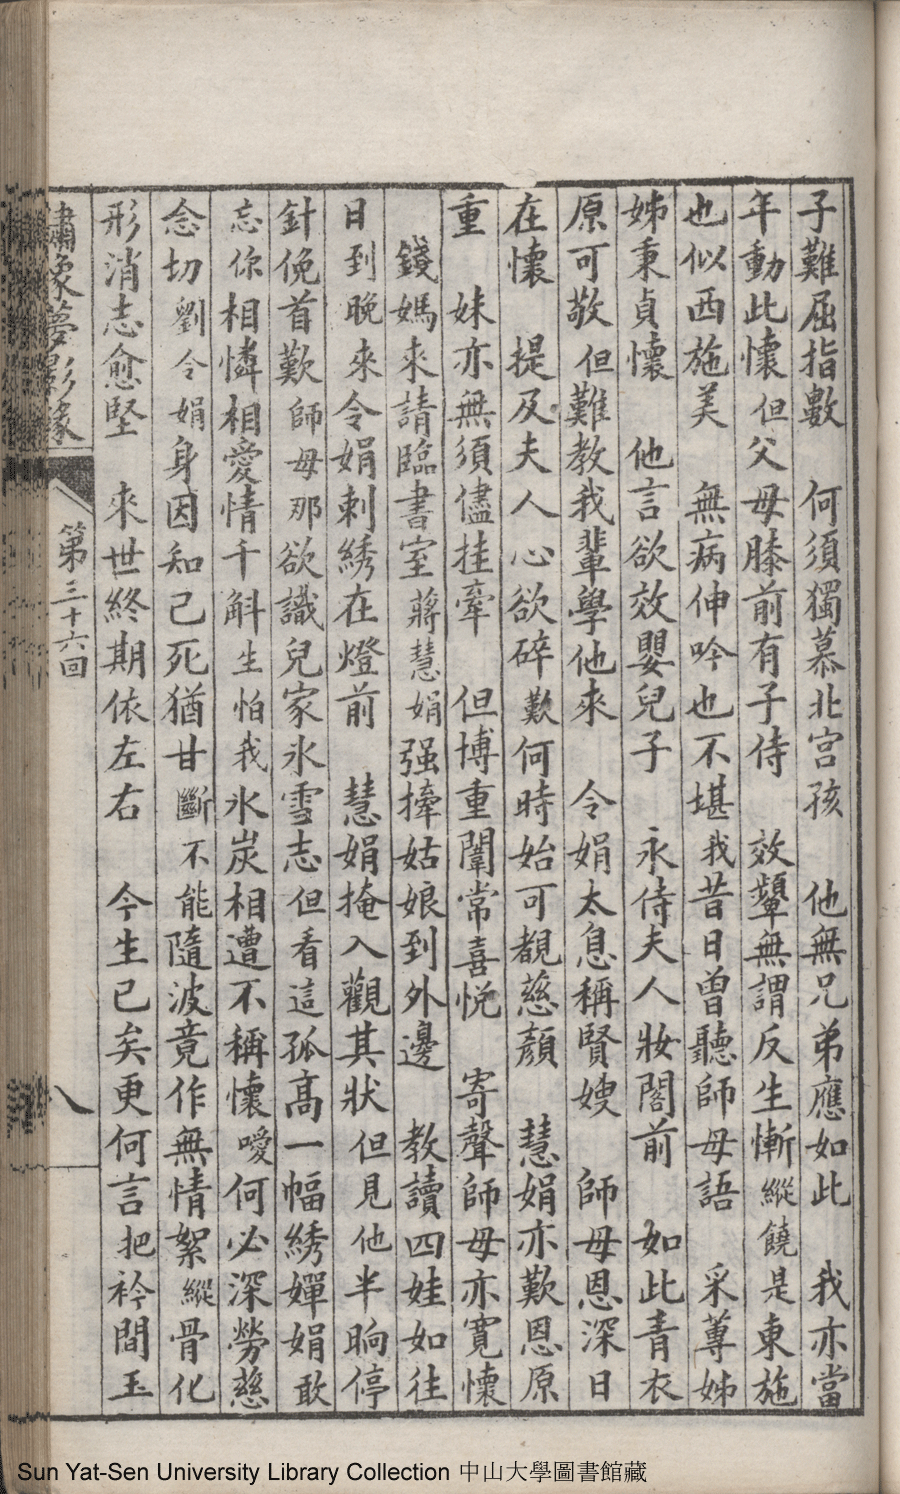 子難屈指數　何須獨慕北宮孩　他無兄弟應如此　我亦當
年動此懷但父母膝前有子侍　效顰無謂反生慚縱饒是東施
也似西施美　無病伸吟也不堪我昔日曾聽師母語　采蓴姊
姊秉貞懷　他言欲效嬰兒子　永侍夫人妝閣前　如此青衣
原可敬但難教我輩學他來　令娟太息稱賢嫂　師母恩深日
在懷　提及夫人心欲碎歎何時始可覩慈顏　慧娟亦歎恩原
重　妹亦無須儘挂牽　但博重闈常喜悅　寄聲師母亦寬懷
錢媽來請臨書室蔣慧娟强擡姑娘到外邊　教讀四娃如往
日到晚來令娟刺綉在燈前　慧娟掩入觀其狀但見他半晌停
針俛首歎師母那欲識兒家氷雪志但看這孤高一幅綉嬋娟敢
忘你相憐相愛情千斛生怕我氷炭相遭不稱懷噯何必深勞慈
念切劉令娟身因知己死猶甘斷不能隨波竟作無情絮縱骨化
形消志愈堅　來世終期依左右　今生已矣更何言把衿間玉
繡像夢影緣
第三十六回
八
Sun Yat-Sen University Library Collection 中山大學圖書館藏